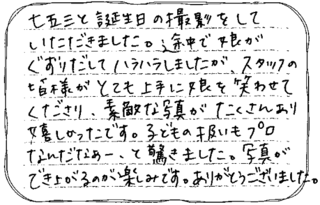 七五三と誕生日の撮影をして
いただきました。途中で娘が
ぐずりだしてハラハラしましたが、スタッフの
皆様がとても上手に娘を笑わせて
くださり、素敵な写真がたくさんあり
嬉しかったです。子どもの扱いもプロ
なんだなぁー、と驚きました。写真が
でき上がるのが楽しみです。ありがとうございました。